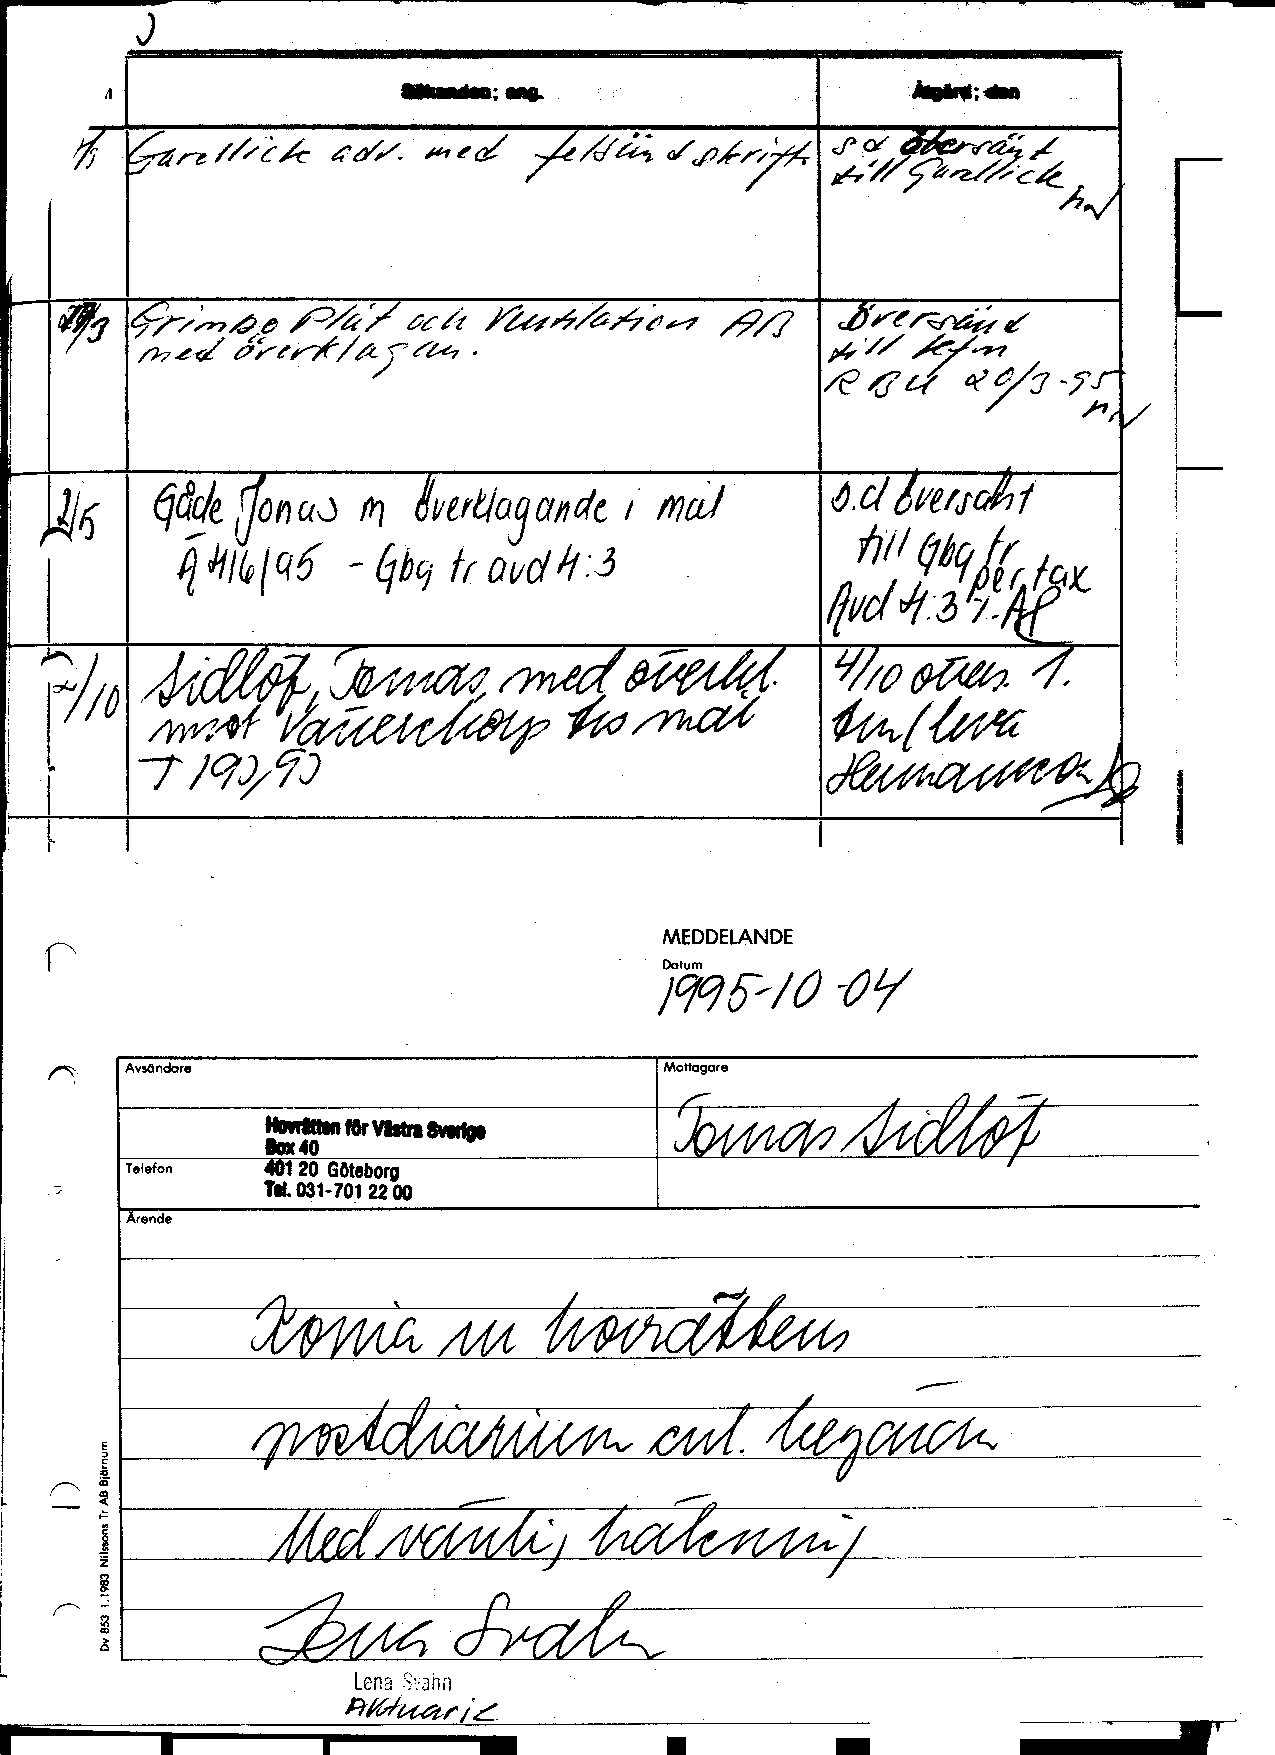 Sökanden; ang. Åtgärd; den
Garellick adv. med felsänd skrift s d översänt
till Garellick
20/3 Grimbo Plåt och Ventilation AB Översänt
med överklagan. till kfm
R BU 20/3-95
2/5 Gåde Jonas m överklagande i mål s.d översänt
Ä 416/95 - Gbg tr avd 4:3 till Gbg tr
per fax
Avd 4:3
2/10 Sidlöf, Tomas, med överkl. 4/10 övers. t.
mot Vänersborgs trs mål
T 190/90
Hermansson
MEDDELANDE
Datum
1995-10-04
Avsändare Mottagare
Hovrätten för Västra Sverige Tomas Sidlöf
Box 40
Telefon 401 20 Göteborg
Tel. 031-701 22 00
Ärende
Kopia ur hovrättens
postdiarium enl. begäran
Med vänlig hälsning
Lena Svahn
Lena Svahn
Aktuarie
Dv 853 1.1983 Nilssons Tr AB Bjärnum